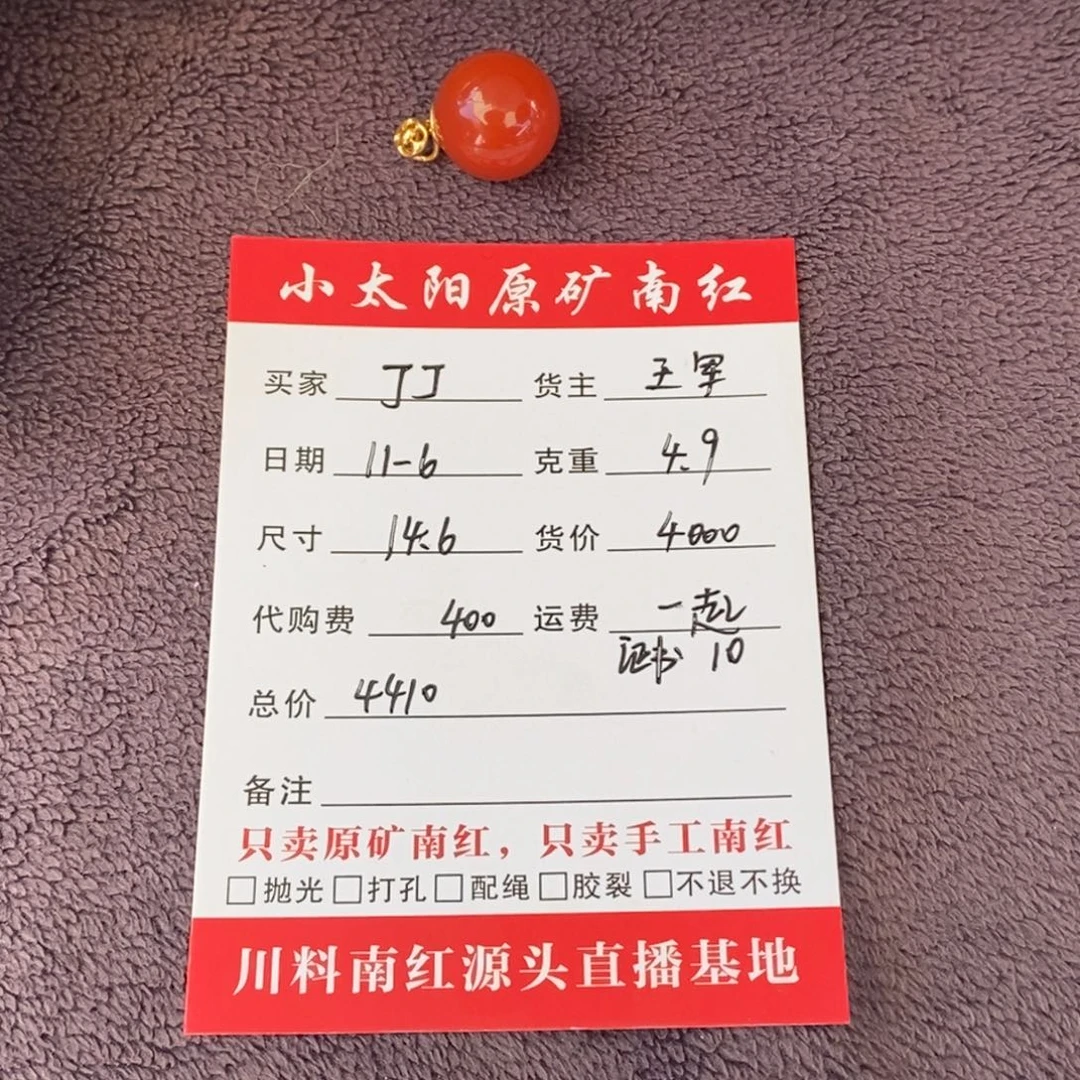 小太阳原矿南红
买家 丁丁 货主 王军
日期 11-6 克重 4.9
尺寸 14.6 货价 4000
代购费 400 运费 一起
证书 10
总价 4410
备注
只卖原矿南红，只卖手工南红
□抛光□打孔□配绳□胶裂□不退不换
川料南红源头直播基地